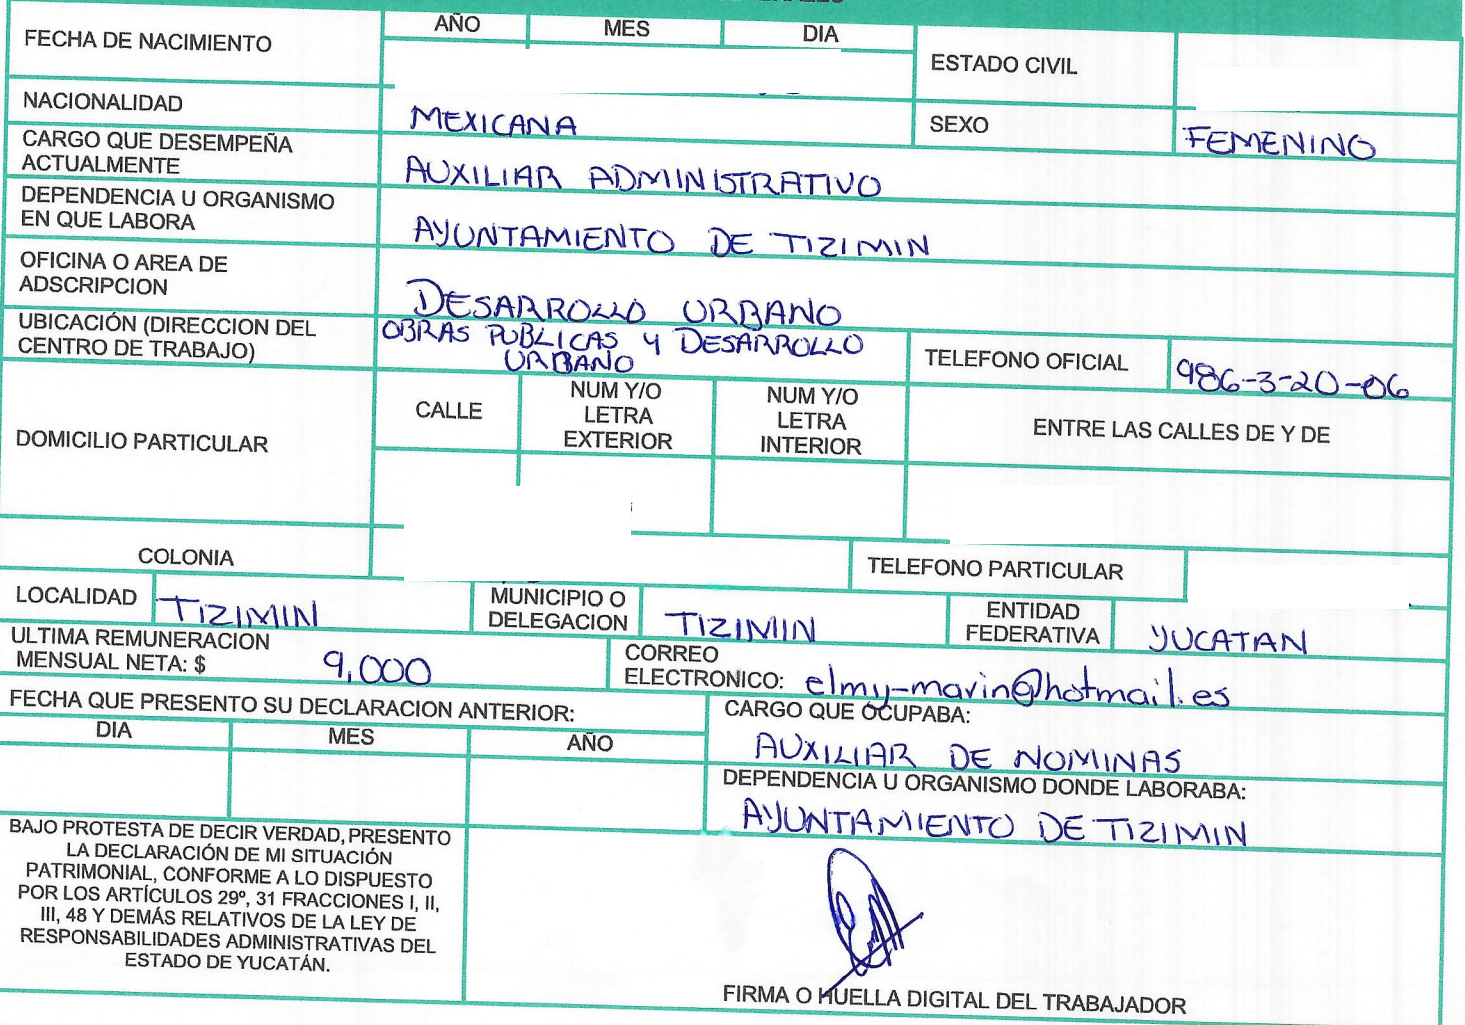 AÑO MES DIA
FECHA DE NACIMIENTO
ESTADO CIVIL
NACIONALIDAD MEXICANA SEXO FEMENINO
CARGO QUE DESEMPEÑA
ACTUALMENTE
AUXILIAR ADMINISTRATIVO
DEPENDENCIA U ORGANISMO
EN QUE LABORA
AYUNTAMIENTO DE TIZIMIN
OFICINA O AREA DE
ADSCRIPCION
DESARROLLO URBANO
UBICACIÓN (DIRECCION DEL
CENTRO DE TRABAJO)
OBRAS PUBLICAS Y DESARROLLO
URBANO
TELEFONO OFICIAL 986-3-20-06
DOMICILIO PARTICULAR
CALLE
NUM Y/O
LETRA
EXTERIOR
NUM Y/O
LETRA
INTERIOR
ENTRE LAS CALLES DE Y DE
COLONIA
TELEFONO PARTICULAR
LOCALIDAD TIZIMIN
MUNICIPIO O
DELEGACION
TIZIMIN
ENTIDAD
FEDERATIVA
YUCATAN
ULTIMA REMUNERACION
MENSUAL NETA: $ 9,000
CORREO
ELECTRONICO: elmy-marin@hotmail.es
FECHA QUE PRESENTO SU DECLARACION ANTERIOR:
DIA MES AÑO
CARGO QUE OCUPABA:
AUXILIAR DE NOMINAS
DEPENDENCIA U ORGANISMO DONDE LABORABA:
AYUNTAMIENTO DE TIZIMIN
BAJO PROTESTA DE DECIR VERDAD, PRESENTO
LA DECLARACIÓN DE MI SITUACIÓN
PATRIMONIAL, CONFORME A LO DISPUESTO
POR LOS ARTÍCULOS 29º, 31 FRACCIONES I, II,
III, 48 Y DEMÁS RELATIVOS DE LA LEY DE
RESPONSABILIDADES ADMINISTRATIVAS DEL
ESTADO DE YUCATÁN.
FIRMA O HUELLA DIGITAL DEL TRABAJADOR